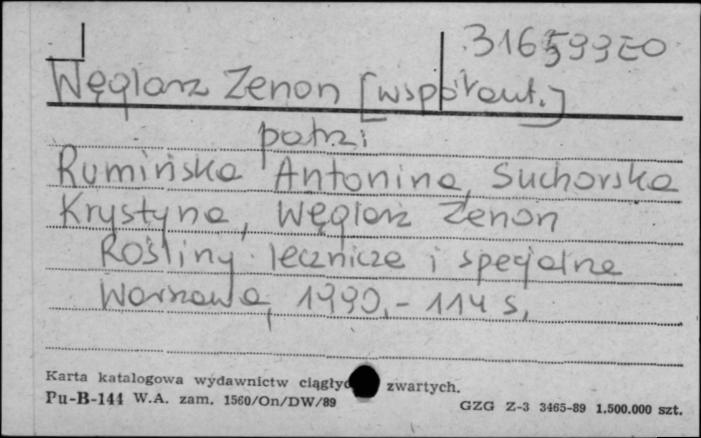 316599 E0
Węglarz Zenon [współaut.]
patrz
Rumińska Antonina, Suchorska
Krystyna, Węglarz Zenon
Rośliny lecznicze i specjalne
Warszawa, 1990, - 114 s,
Karta katalogowa wydawnictw zwartych.
Pu-B-144 W.A. zam. 1560/On/DW/89 GZG Z-3 3465-89 1.500.000 szt.